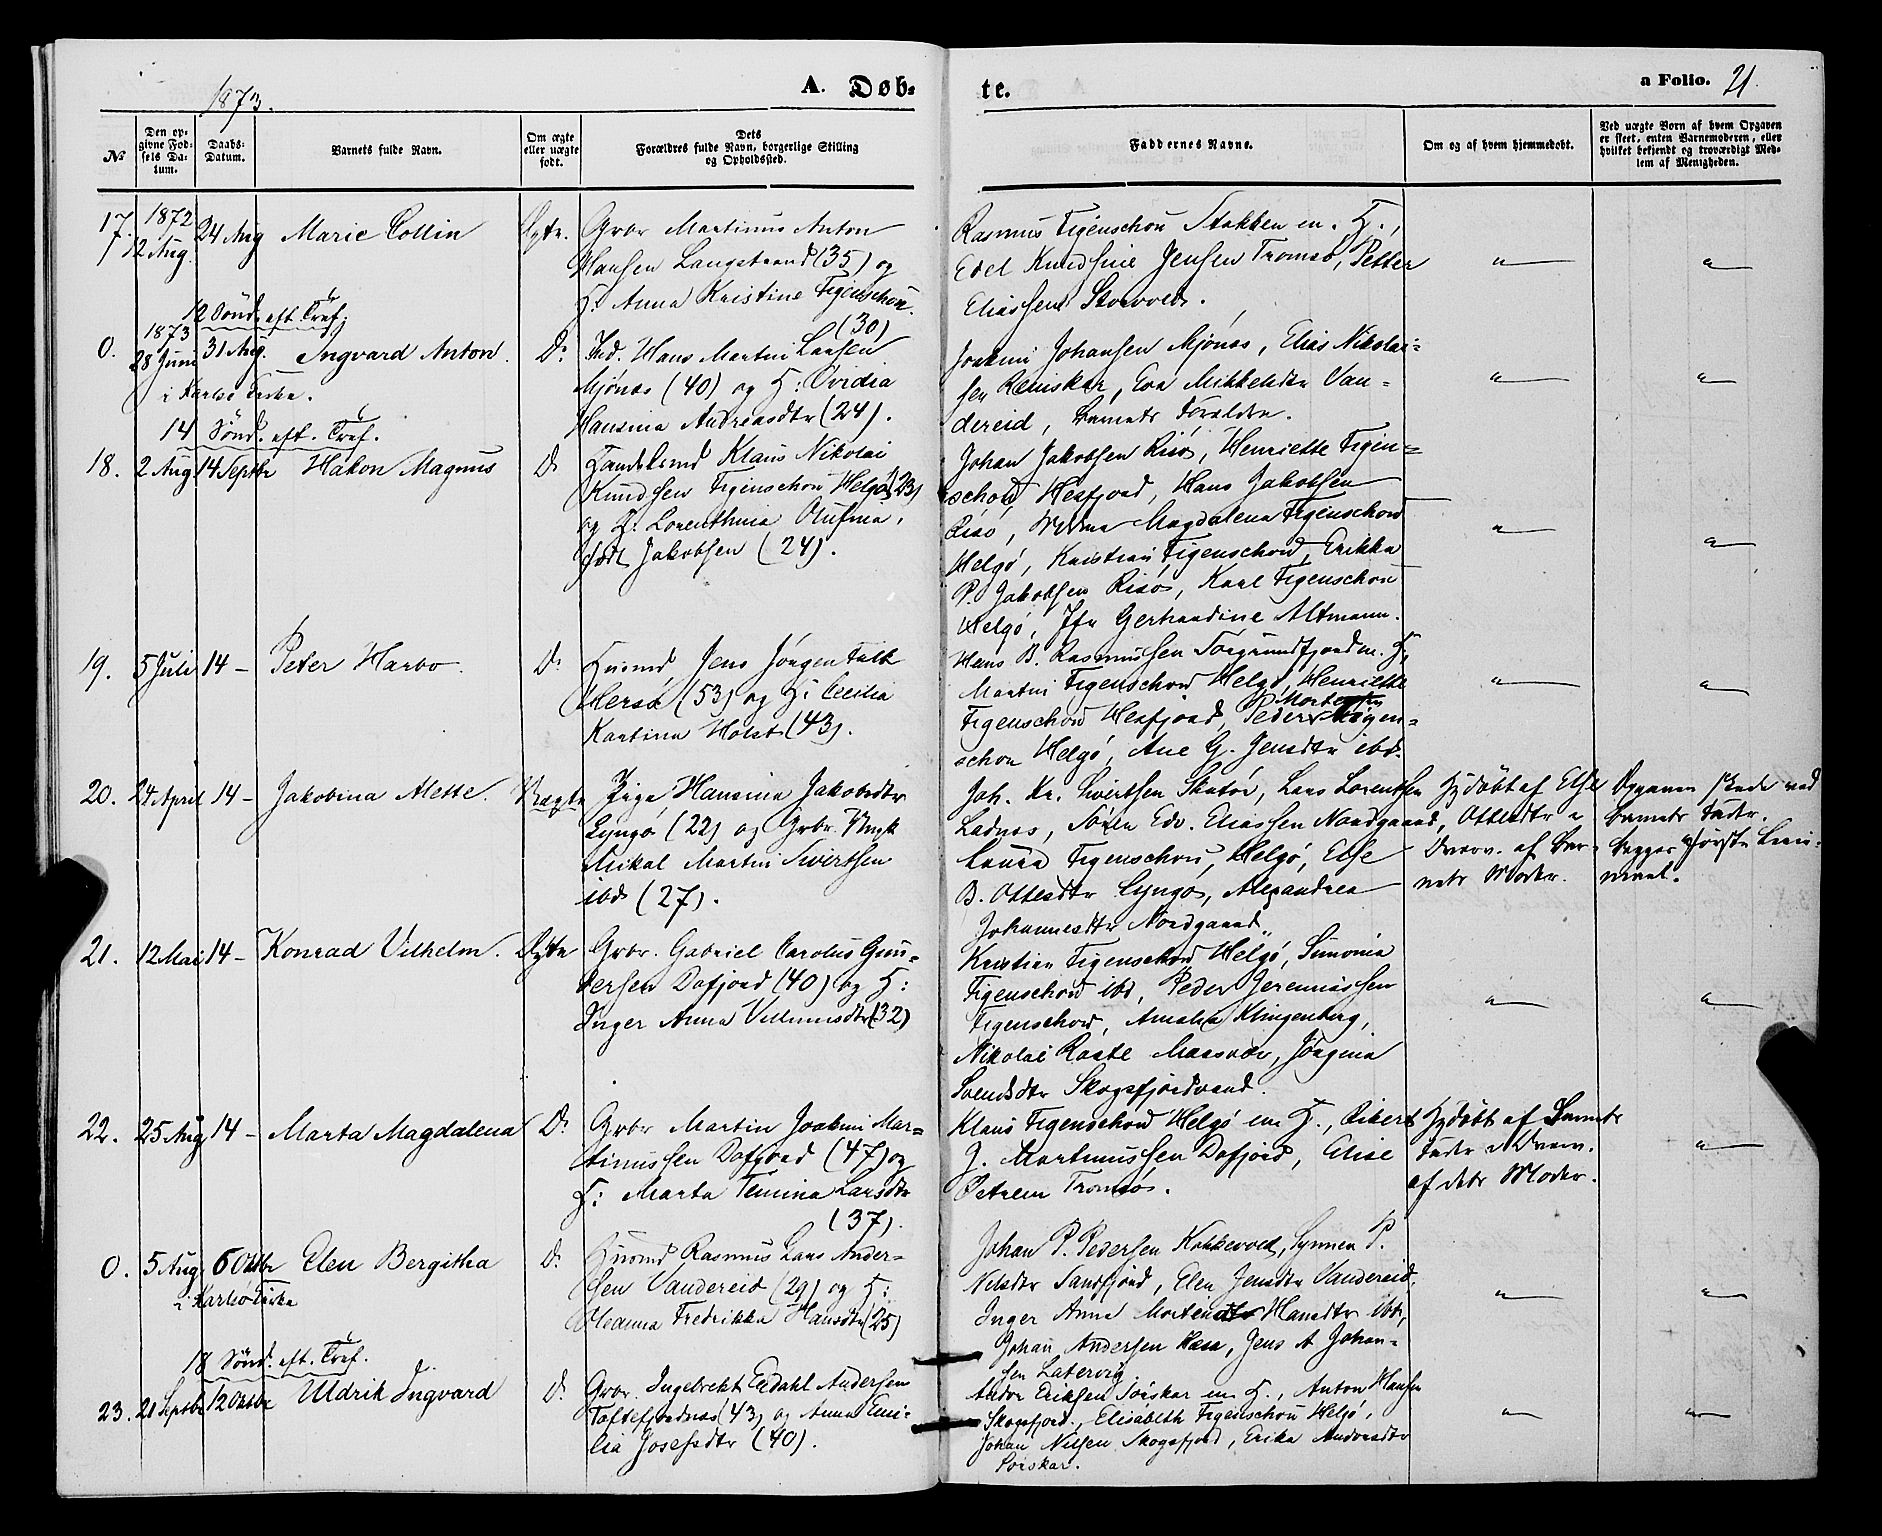 1873.
A. Døb-
te.
a Folio. 21.
No
Den op-
givne Fød-
sels Da-
tum.
Daabs-
Datum.
Barnets fulde Navn.
Om ægte
eller uægte
født.
Dets
Forældres fulde Navn, borgerlige Stilling
og Opholdssted.
Faddernes Navne.
Om og af hvem hjemmedøbt.
Ved uægte Børn af hvem Opgaven
er skeet, enten Barnemoderen, eller
hvilket bekjendt og troværdigt Med-
lem af Menigheden.
17. 1872
12 Aug. 24 Aug Marie Collin Ægte.
Gbr Martinus Anton
Hansen Langstrand (35) og
H: Anna Kristine Figenschou
(30)
Rasmus Figenschou Stakken m. H.,
Edel Knudsine Jensen Tromsø, Petter
Eliassen Storvold.
12 Sönd. eft. Tref.
0. 1873
28 Juni 31 Aug. Ingvard Anton. D:
i Karlsø Kirke.
Ind. Hans Martin Larsen
Mjönes (40) og H: Ovidia
Hansina Andreasdtr (24).
Joakim Johansen Mjönes, Elias Nikolai-
sen Reinskar, Eva Mikkelsdtr Van-
dereid, Barnets Forældre.
14 Sönd. eft. Tref.
18. 2 Aug 14 Septbr Hakon Magnus D:
Handelsmd Klaus Nikolai
Knudsen Figenschou Helgø (23)
og H: Lorenthina Olufina,
født Jakobsen (24).
Johan Jakobsen Risø, Henriette Figen-
schou Hesfjord, Hans Jakobsen
Risø, Magdalena Figenschou
Helgø, Kristian Figenschou, Erikka
P. Jakobsen Risø, Karl Figenschou
Helgø, Jfr Gerhardine Altmann.
19. 5 Juli 14 – Peter Harbo. D:
Husmd Jens Jörgen Falk
Hersø (53) og H: Cecilia
Kartina Holst (43).
Hans B. Rasmussen Sörgrundfjord m. H,
Martin Figenschou Helgø, Henriette
Figenschou Hesfjord, Peder Mortensen Figen-
schou Helgø, Ane G. Jensdtr ibd.
20. 24 April 14 – Jakobina Alette. Uægte
Pige Hansina Jakobsdtr
Lyngø (22) og Gbr. Ungk
Mikal Martin Sivertsen
ibd (27).
Joh. Kr. Sivertsen Skatör, Lars Lorentsen
Ladnes, Sören Edv. Eliassen Nordgaard,
Laura Figenschou, Helgø, Else
B. Ottesdtr Lyngø, Alexandrea
Johannesdtr Nordgaard.
Hjdöbt af Else
Ottesdtr
Overv. af Bar-
nets Moder.
Opgaven skede ved
Barnets Fader.
Begges første Leier-
maal.
21. 12 Mai 14 – Konrad Vilhelm. Ægte
Gbr. Gabriel Carolus Gun-
dersen Dafjord (40) og H:
Inger Anna Villumsdtr (32)
Kristian Figenschou Helgø, Simonia
Figenschou ibd, Peder Jeremiassen
Figenschou, Amalia Klingenberg,
Nikolai Raste Maasvær, Jörgina
Svendsdtr Skogsfjordvand.
22. 25 Aug 14 – Marta Magdalena D:
Gbr Martin Joakim Mar-
tinussen Dafjord (47) og
H: Marta Temina Larsdtr
(37).
Klaus Figenschou Helgø m H., Rikert
J. Martinussen Dafjord, Elise
Tromsø.
Hjdöbt af Barnets
Fader
af dets Moder.
0. 5 Aug 6 Oktbr Elen Bergitha D:
i Karlsø Kirke
Husmd Rasmus Lars Ander-
sen Vandereid (29) og H:
Oleanna Fredrikka Hansdtr (25)
Johan P. Pedersen Kokkevold, Synnen P.
Nilsdtr Sandfjord, Elen Jensdtr Vandereid.
Inger Anna Hansdtr ibd,
Johan Andersen Hasa, Jens A Johan-
sen Latervig.
18 Sönd. eft. Tref.
23. 21 Septbr 12 Oktbr Uldrik Ingvard D:
Gbr. Ingebrekt Erdahl Andersen
Toftefjordnes (43) og Anna Emi-
lia Josefsdtr (40).
Andor Eriksen Sörskar m H., Anton Hansen
Skogsfjord, Elisabeth Figenschou Helgø,
Johan Nilsen Skogsfjord, Erika Andreasdtr
Sörskar.